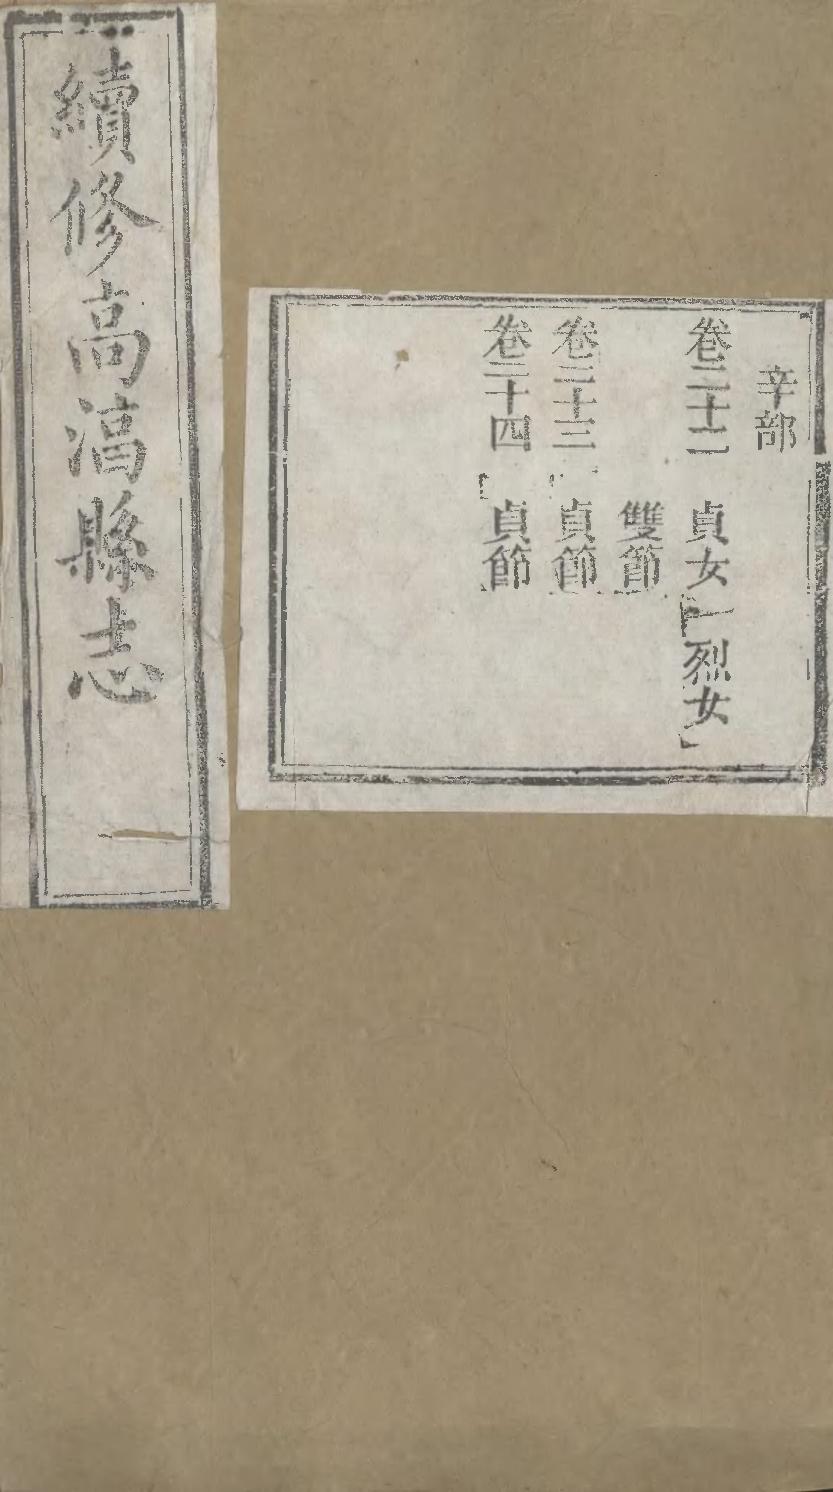 辛部
卷二十二 貞女 烈女
雙節
卷二十三 貞節
卷二十四 貞節
續修高湻縣志